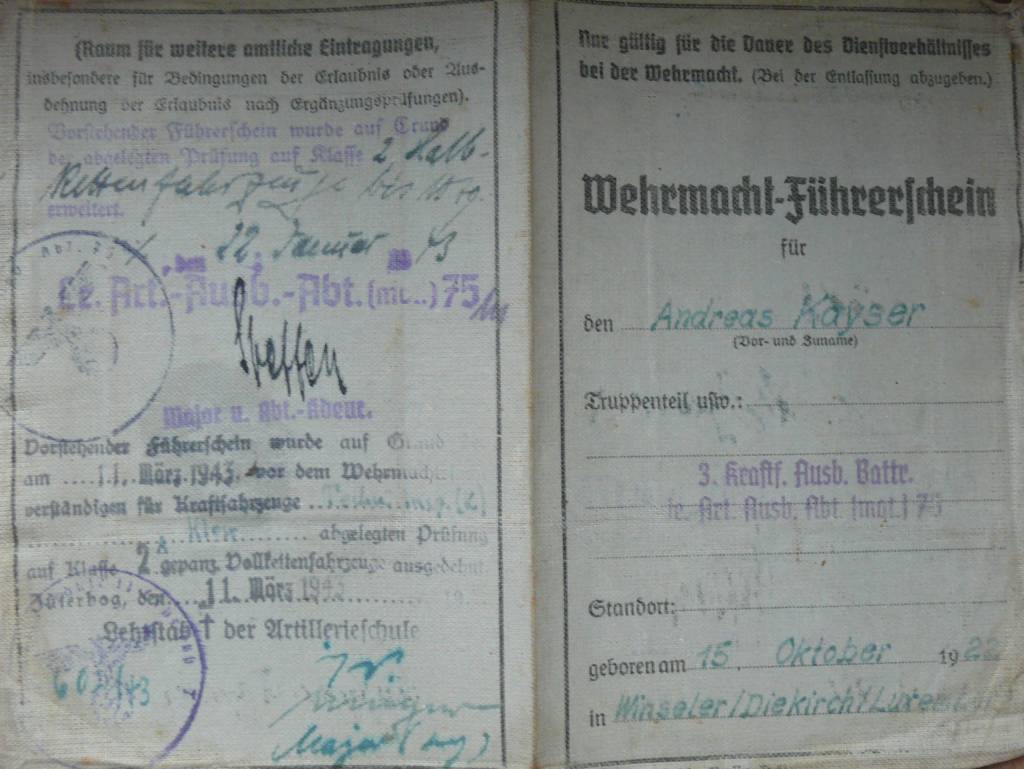 (Raum für weitere amtliche Eintragungen,
insbesondere für Bedingungen der Erlaubnis oder Aus-
dehnung der Erlaubnis nach Ergänzungsprüfungen).
Vorstehender Führerschein wurde auf Grund
der abgelegten Prüfung auf Klasse 2 Halb-
kettenfahrzeuge bis
erweitert.
, den 22. Januar 43
Le. Art.-Ausb.-Abt. (mot.) 75
Steffen
Major u. Abt.-Kdeur.
Vorstehender Führerschein wurde auf Grund der
am 11. März 1943 vor dem Wehrmacht
verständigen für Kraftfahrzeuge Techn. Insp. (K)
abgelegten Prüfung
auf Klasse 2 gepanz. Vollkettenfahrzeuge ausgedehnt
Jüterbog, den 11. März 1943 19
Lehrstab I der Artillerieschule
I.V.
Major
Nur gültig für die Dauer des Dienstverhältnisses
bei der Wehrmacht. (Bei der Entlassung abzugeben.)
Wehrmacht-Führerschein
für
den Andreas Kayser
(Vor- und Zuname)
Truppenteil usw.:
3. Kraftf. Ausb. Battr.
le. Art. Ausb. Abt. (mot.) 75
Standort:
geboren am 15. Oktober 1922
in Winseler/Diekirch/Luxemburg